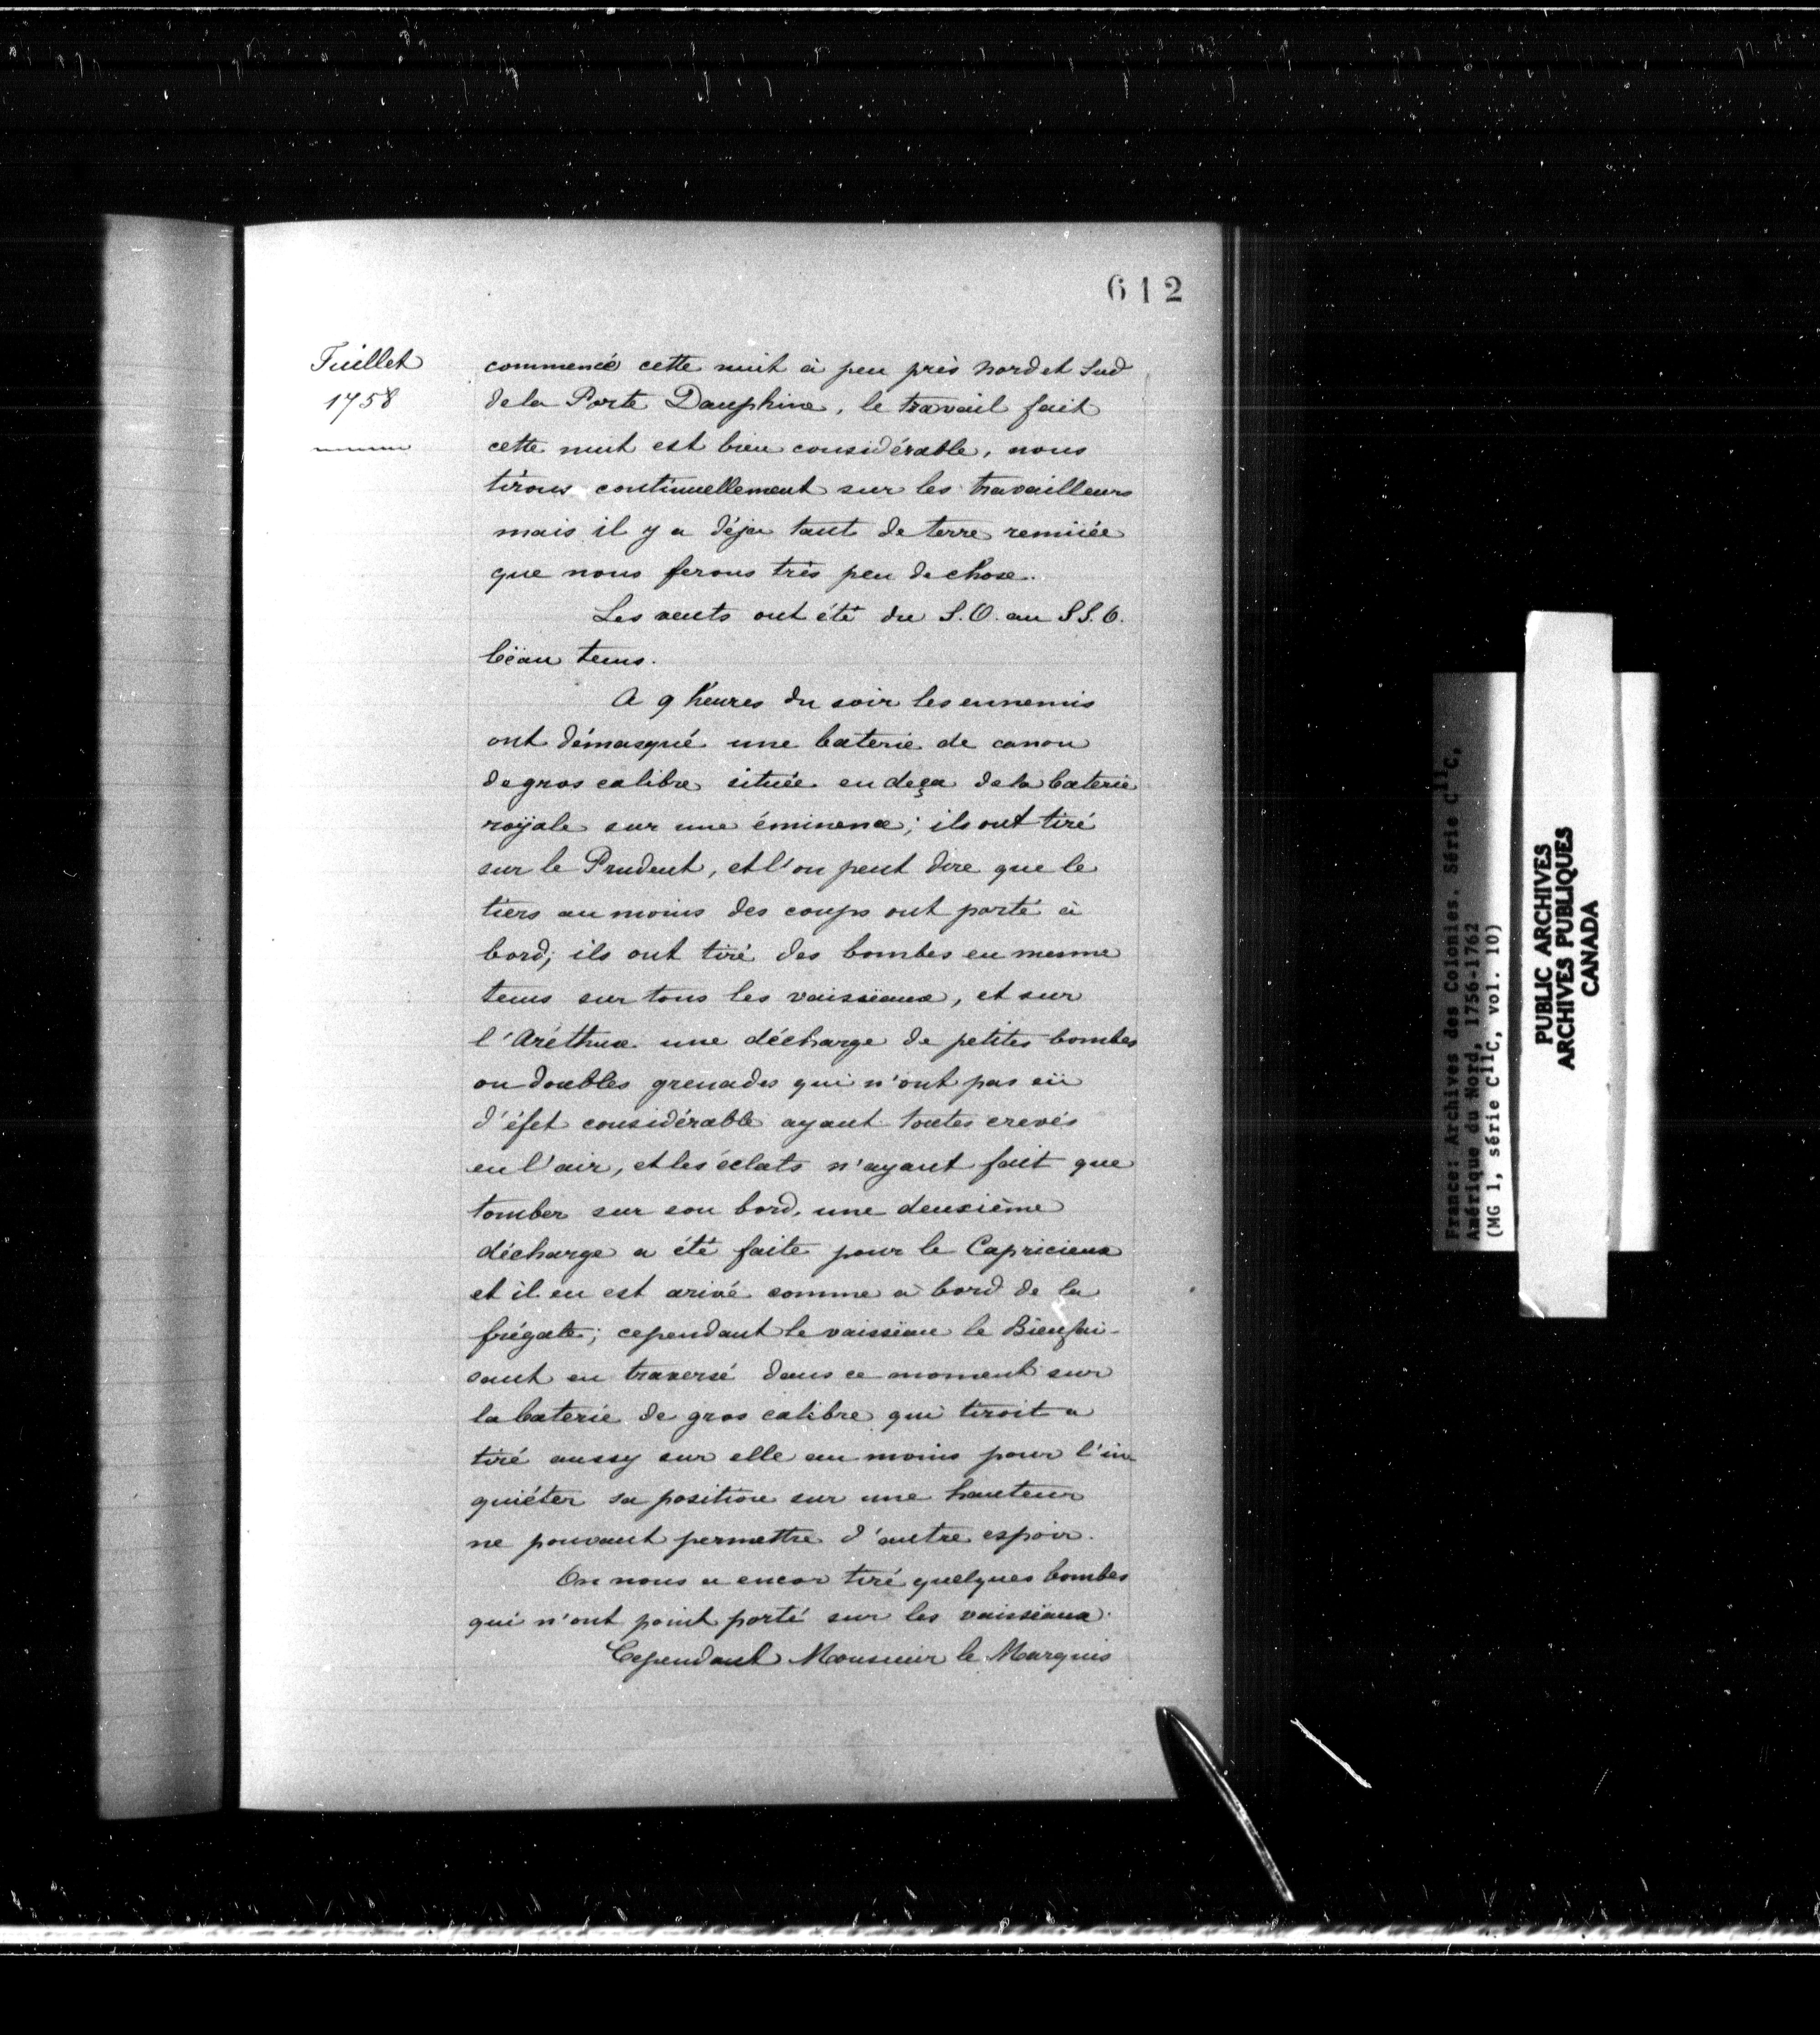 612
Juillet
1758
commencé cette nuit à peu près nord et Sud
de la Porte Dauphine, le travail fait
cette nuit est bien considérable, nous
tirons continuellement sur les travailleurs
mais il y a déja tant de terre remüée
que nous ferons très peu de chose.
Les vents ont été du S.O. au SS.O.
bëau tems.
A 9 heures du soir les ennemis
ont démasqué une baterie de canon
de gros calibre située en deça de la baterie
roÿale sur une éminence; ils ont tiré
sur le Prudent, et l'on peut dire que le
tiers au moins des coups ont porté à
bord; ils ont tiré des bombes en mesme
tems sur tous les vaissëaux, et sur
l'Aréthuse une décharge de petites bombes
ou doubles grenades qui n'ont pas eü
d'éfet considérable ayant toutes crevés
en l'air, et les éclats n'ayant fait que
tomber sur son bord, une deuxième
décharge a été faite pour le Capricieux
et il en est arivé comme à bord de la
frégate; cependant le vaissëau le Bienfai-
sant en traversé dans ce moment sur
la baterie de gros calibre qui tiroit a
tiré aussy sur elle au moins pour l'in
quiéter sa position sur une hauteur
ne pouvant permettre d'autre espoir.
On nous a encor tiré quelques bombes
qui n'ont point porté sur les vaissëaux.
Cependant Monsieur le Marquis
France: Archives des Colonies. Série C11C,
Amérique du Nord, 1756-1762
(MG 1, série C11C, vol. 10)
PUBLIC ARCHIVES
ARCHIVES PUBLIQUES
CANADA